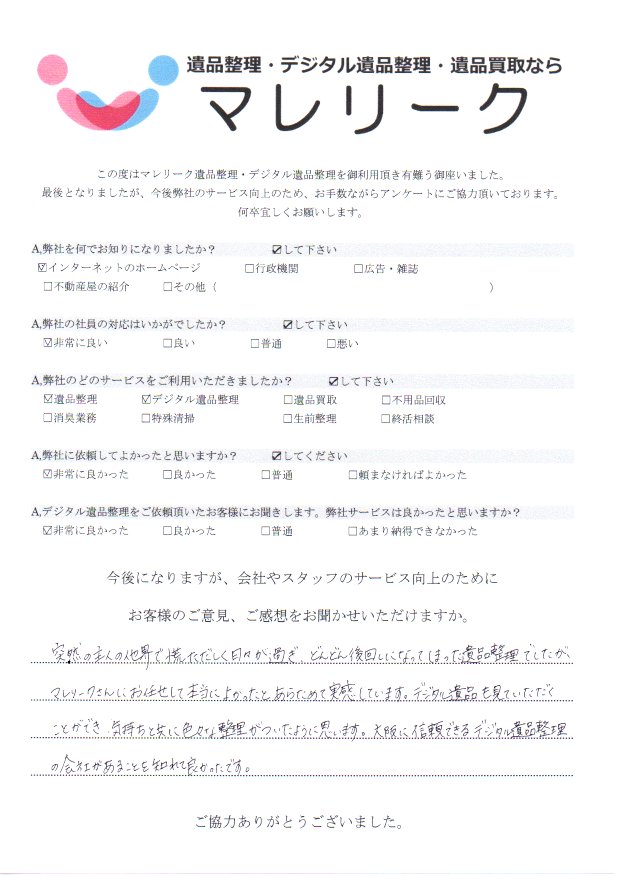 遺品整理・デジタル遺品整理・遺品買取なら
マレリーク
この度はマレリーク遺品整理・デジタル遺品整理を御利用頂き有難う御座いました。
最後となりましたが、今後弊社のサービス向上のため、お手数ながらアンケートにご協力頂いております。
何卒宜しくお願いします。
A,弊社を何でお知りになりましたか？ ☑して下さい
☑インターネットのホームページ □行政機関 □広告・雑誌
□不動産屋の紹介 □その他（ ）
A,弊社の社員の対応はいかがでしたか？ ☑して下さい
☑非常に良い □良い □普通 □悪い
A,弊社のどのサービスをご利用いただきましたか？ ☑して下さい
☑遺品整理 ☑デジタル遺品整理 □遺品買取 □不用品回収
□消臭業務 □特殊清掃 □生前整理 □終活相談
A,弊社に依頼してよかったと思いますか？ ☑してください
☑非常に良かった □良かった □普通 □頼まなければよかった
A,デジタル遺品整理をご依頼頂いたお客様にお聞きします。弊社サービスは良かったと思いますか？
☑非常に良かった □良かった □普通 □あまり納得できなかった
今後になりますが、会社やスタッフのサービス向上のために
お客様のご意見、ご感想をお聞かせいただけますか。
突然の主人の他界で慌ただしく日々が過ぎ、どんどん後回しになってしまった遺品整理でしたが
マレリークさんにお任せして本当によかったとあらためて実感しています。デジタル遺品も見ていただく
ことができ、気持ちと共に色々な整理がついたように思います。大阪に信頼できるデジタル遺品整理
の会社があることを知れて良かったです。
ご協力ありがとうございました。